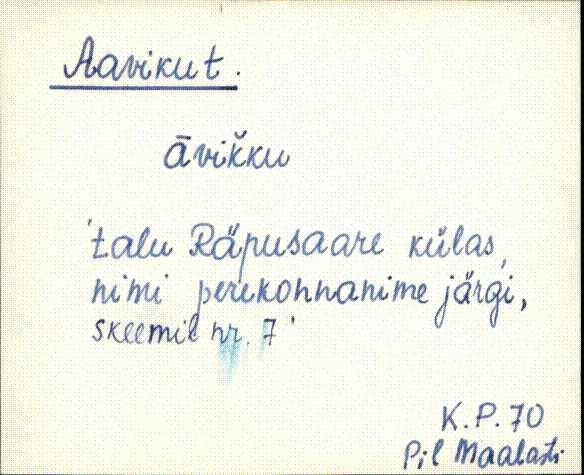 Aavikut.
āvik̆ku
'talu Räpusaare külas,
nimi perekonnanime järgi,
skeemil nr. 7'
K.P. 70
Pil Maalasti